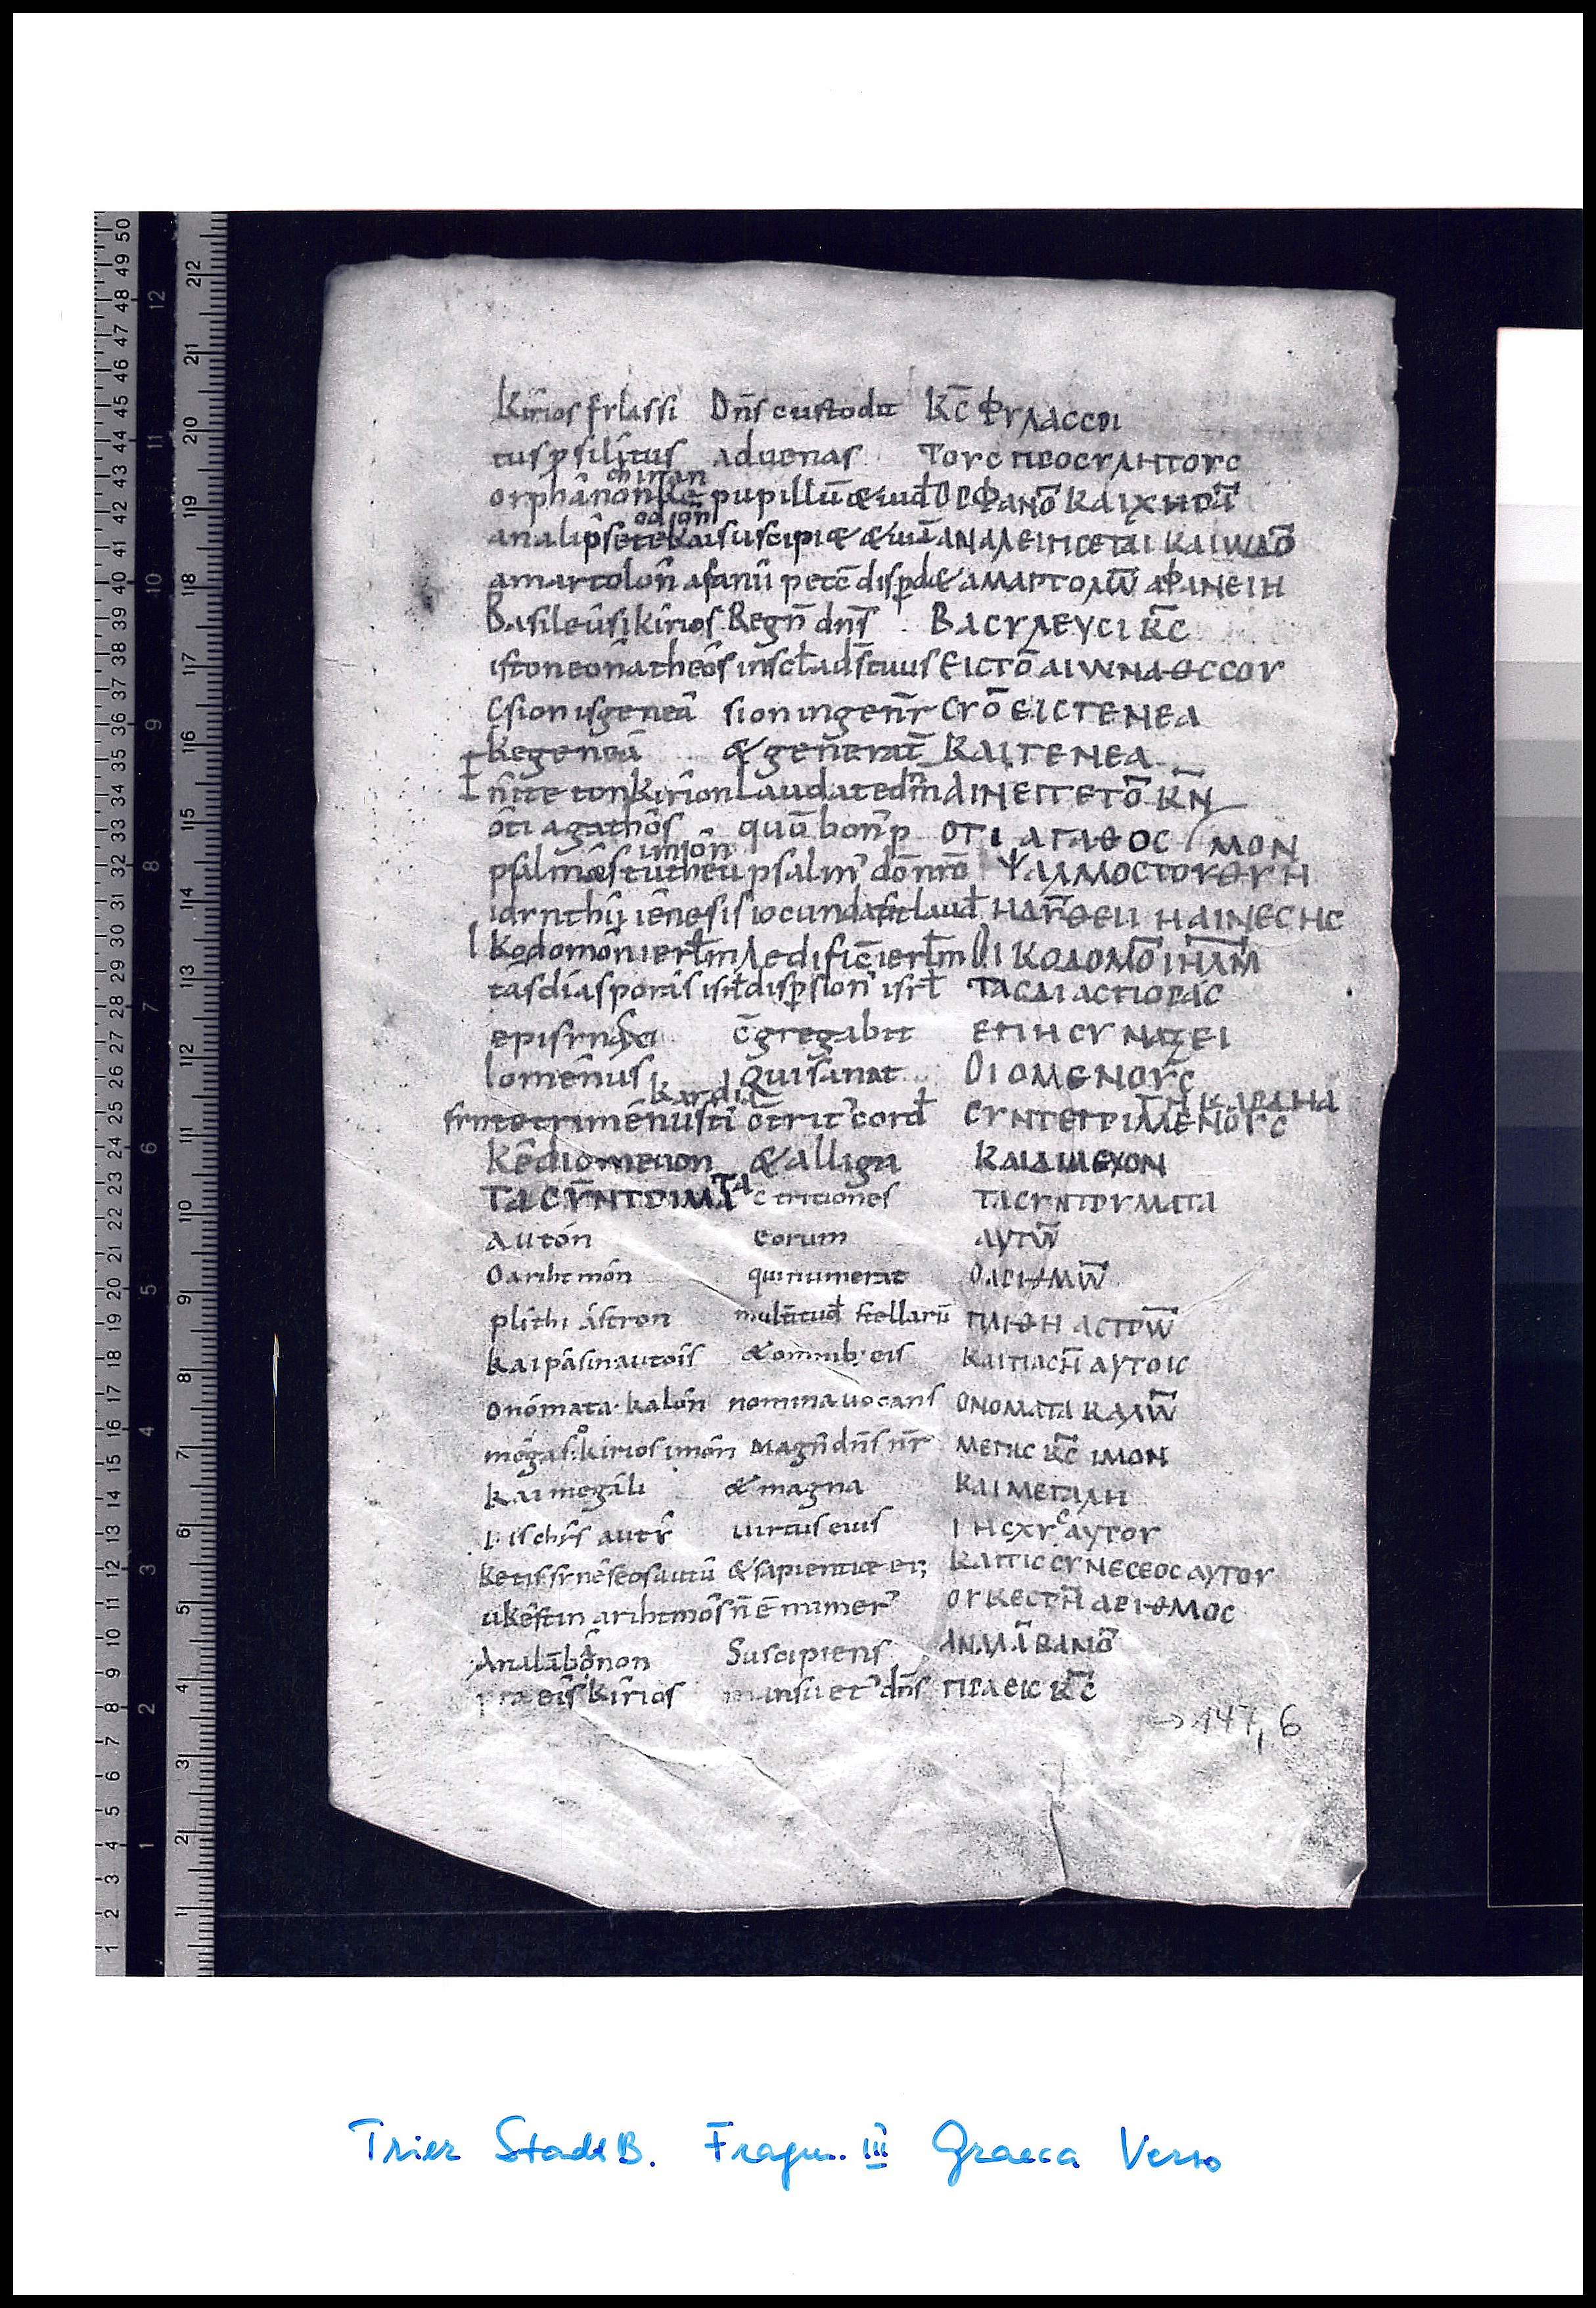 Kirios frlassi Dn̄s custodit K̅C̅ ΦΥΛΑCCΕΙ
tus psilitus aduenas ΤΟΥC ΠΡΟCΥΛΗΤΟΥC
chiran
orphanon ke pupillū & uid ΟΡΦΑΝΟ̅ ΚΑΙ ΧΗΡΑ̅
odon
analipsete kai suscipi& & uiā ΑΝΑΛΕΙΠCΕΤΑΙ ΚΑΙ ШΔΟ̅
amartolon afanii petc̄ dispd& ΑΜΑΡΤΟΛW̅ ΑΦΑΝΕΙΗ
Basileusi kirios Regn̄ dn̄s ΒΑCΥΛΕΥCΙ K̅C̅
istoneona theos insc̄ła ds̄ tuus ΕΙCΤΟ̅ ΑΙWΝΑ ΘC CΟΥ
Csion isgenea sion in gen̄r CΥΟ̅ ΕΙC ΓΕΝΕΑ
Kegenea & generat̄ ΚΑΙ ΓΕΝΕΑ
nite ton Kirion Laudate dn̄m ΑΙΝΕΙΤΕ ΤΟ̅ K̅N̅
oti agathos quō bon' p ΟΤΙ ΑΓΑΘΟC
imon ΜΟΝ
psalmos tutheu psalm' dō nr̄o ΨΑΛΜΟC ΤΟΥ ΘΥ Η
idrnthii ienesis iocunda sit laud ΗΔΥ̅ΘΕΙΙ Η ΑΙΝΕCΗC
Kodomon ierł̄m Aedific̄ ierł̄m ΟΙΚΟΔΟΜΟ̅ Ι̅Η̅Λ̅Μ̅
tas diasporas isrł dispsion' isrł ΤΑC ΔΙΑCΠΟΡΑC
episrnaxi c̄gregabit ΕΠΗCΥΝΑΞΕΙ
lomenus Qui sanat ΟΙΟΜΕΝΟΥC
kardia ΤΗ ΚΑΡΔΗΑ
srntetrimenusti c̄trit' cord CΥΝΤΕΤΡΙΜΕΝΟΥC
Kediomeuon & alliga ΚΑΙΔΙΙΙΕΧΟΝ
ΤΑCΥ̅ΝΤΡΙΜΑΤΑ c̄ tritiones ΤΑCΥΝΤΡΥΜΑΤΑ
auton eorum ΑΥΤW̅
Oarihtmon qui numerat ΟΑΡΙΘΜW̅
plithi astron multitud stellarū ΠΛΙΘΗ ΑCΤΡW̅
kai pasin autois & omnib; eis ΚΑΙ ΠΑCΗ̅ ΑΥΤΟΙC
onomata kalon nomina uocans ΟΝΟΜΑΤΑ ΚΑΛW̅
megas o kirios imon magn' dn̄s nr̄ ΜΕΓΑC K̅C̅ ΙΜΟΝ
kai megali & magna ΚΑΙ ΜΕΓΑΛΗ
i ischrs autr uirtus eius Ι ΗCΧΥC ΑΥΤΟΥ
ketis srneseos autu & sapientiae ei; ΚΑΙ ΤΙC CΥΝΕCΕΟC ΑΥΤΟΥ
ukestin arihtmos n̄ ē numer' ΟΥΚ ΕCΤΗ̅ ΑΡΙΘΜΟC
Analābonon Suscipiens ΑΝΛΑ̅ΒΑΝΟ̅
praeis kirios mansuet' dn̄s ΠΡΑΕΙC K̅C̅
→ 147, 6
Trier StadtB. Fragm. III Graeca Verso